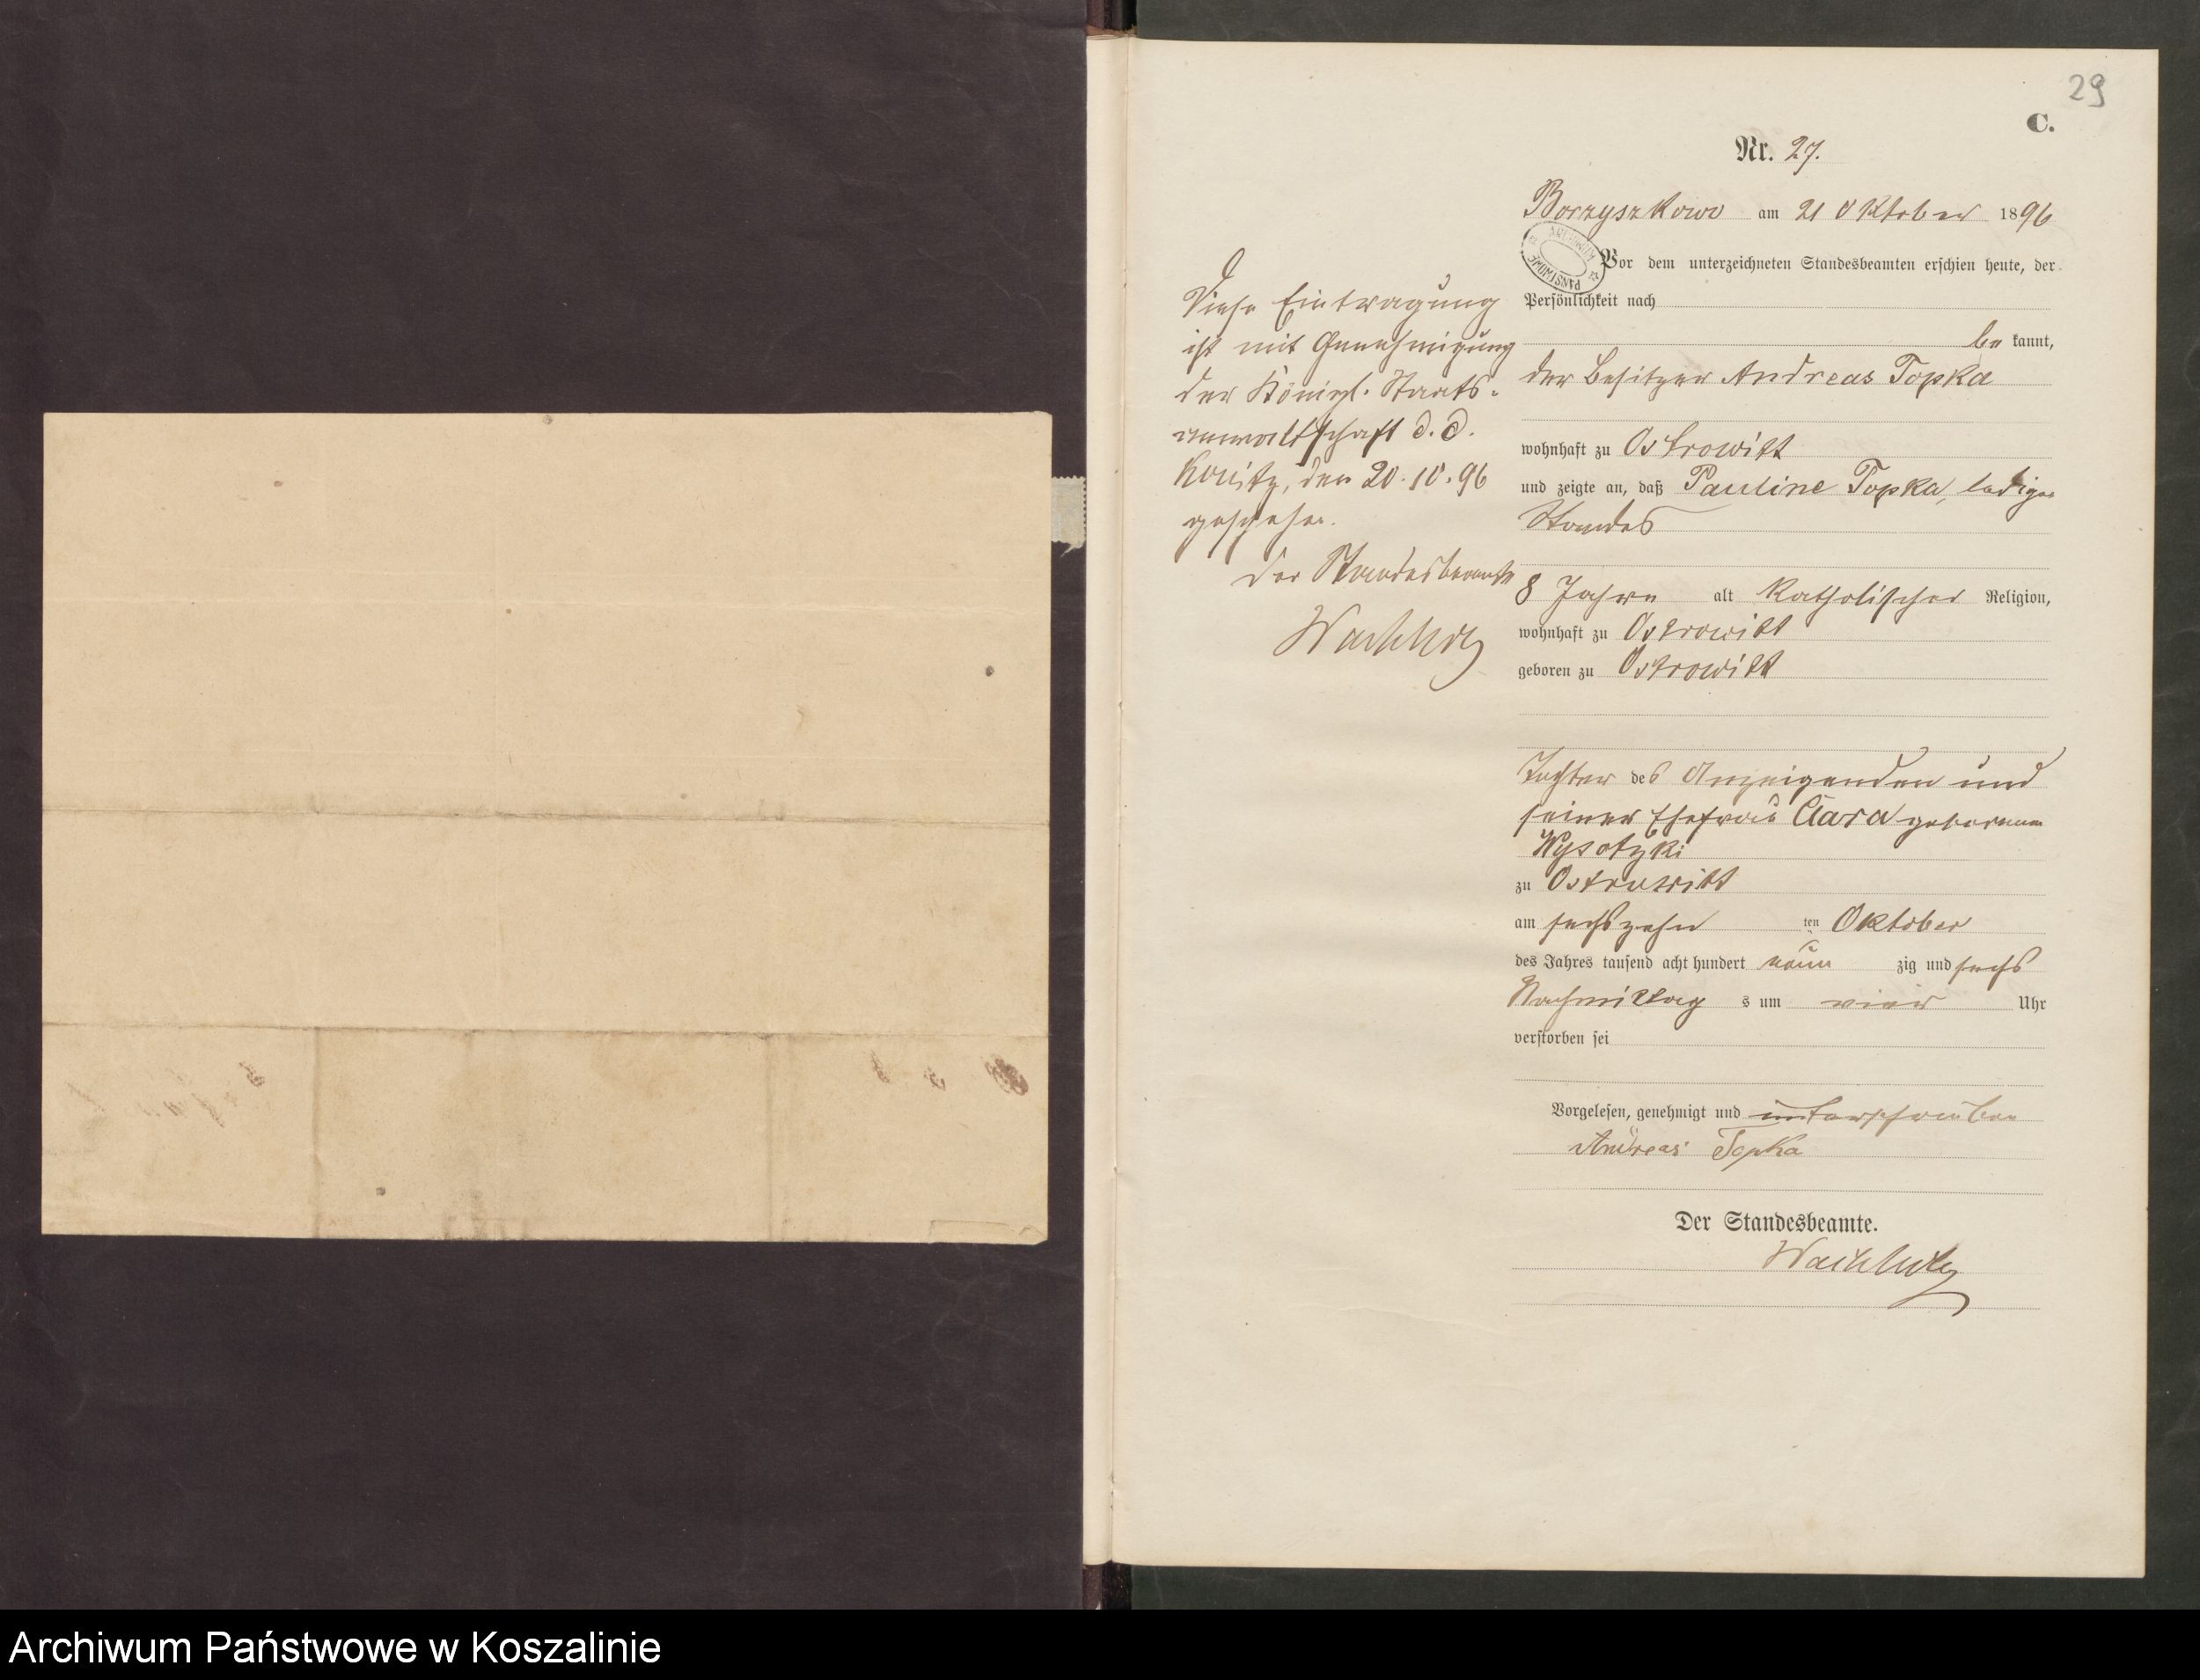 29
C.
Nr. 27.
Borzyszkowo am 21 Oktober 1896
ARCHIWUM PAŃSTWOWE
Vor dem unterzeichneten Standesbeamten erschien heute, der
Persönlichkeit nach
be kannt,
der Besitzer Andreas Topka
wohnhaft zu Ostrowitt
und zeigte an, daß Pauline Topka, ledigen
Standes
8 Jahre alt katholischer Religion,
wohnhaft zu Ostrowitt
geboren zu Ostrowitt
Tochter des Anzeigenden und
seiner Ehefrau Clara geborenen
Wysotzki
zu Ostrowitt
am sechszehn ten Oktober
des Jahres tausend acht hundert neun zig und sechs
Nachmittag s um vier Uhr
verstorben sei
Vorgelesen, genehmigt und unterschrieben
Andreas Topka
Der Standesbeamte.
Diese Eintragung
ist mit Genehmigung
der Königl. Staats-
anwaltschaft d. d.
Konitz, den 20.10.96
geschehen.
Der Standesbeamte
Archiwum Państwowe w Koszalinie